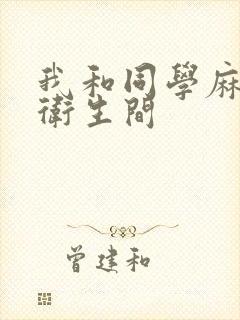 我和同學麻
衛生間
曾建和